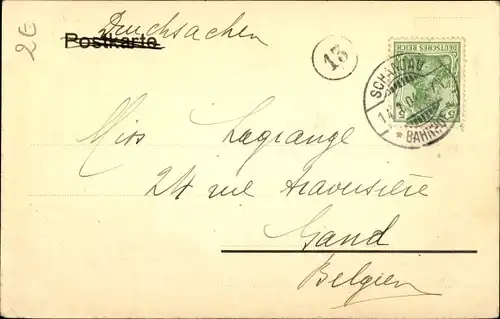 2€
Drucksachen
Postkarte
13
DEUTSCHES REICH
5 5
SCHANDAU
BAHNHOF
Miss Lagrange
24 rue traversière
Gand
Belgien